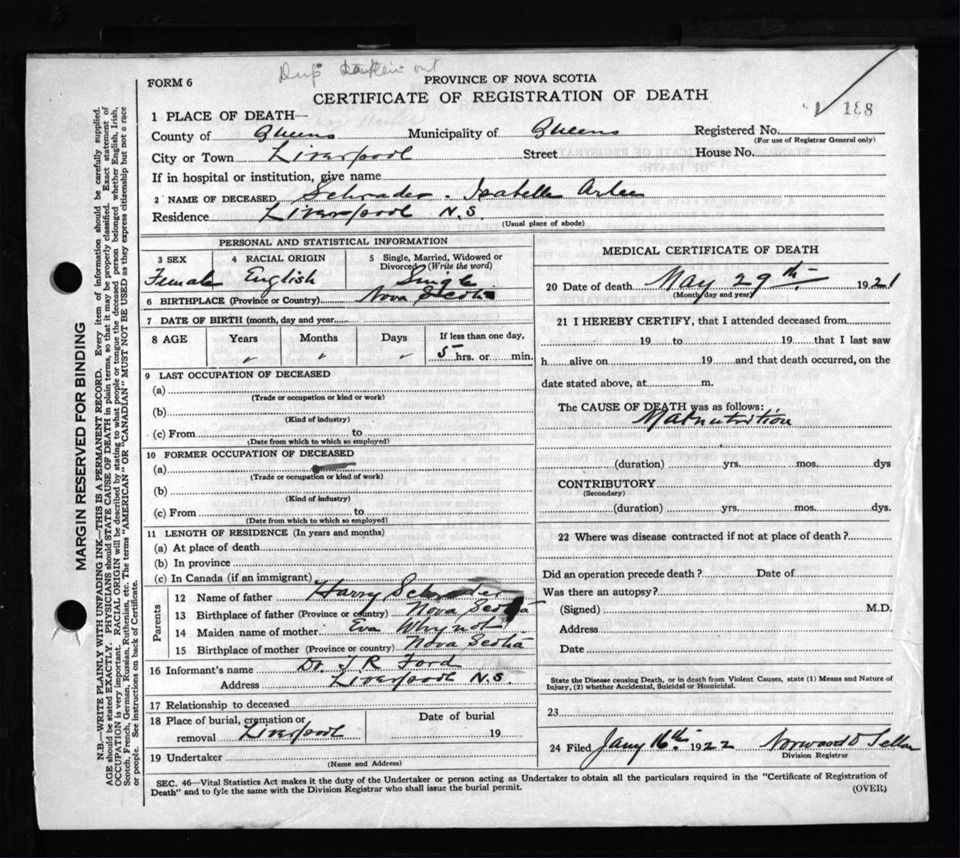 FORM 6
Dup
PROVINCE OF NOVA SCOTIA
CERTIFICATE OF REGISTRATION OF DEATH
188
1 PLACE OF DEATH—
County of Queens Municipality of Queens Registered No.
(For use of Registrar General only)
City or Town Liverpool Street House No.
If in hospital or institution, give name
2 NAME OF DECEASED Schrader - Isabella Arlee
Residence Liverpool N.S.
(Usual place of abode)
PERSONAL AND STATISTICAL INFORMATION
3 SEX 4 RACIAL ORIGIN 5 Single, Married, Widowed or Divorced (Write the word)
Female English Single
6 BIRTHPLACE (Province or Country) Nova Scotia
7 DATE OF BIRTH (month, day and year
8 AGE Years Months Days If less than one day,
" " " 5 hrs. or min.
9 LAST OCCUPATION OF DECEASED
(a)
(Trade or occupation or kind or work)
(b)
(Kind of industry)
(c) From to
(Date from which to which so employed)
10 FORMER OCCUPATION OF DECEASED
(a)
(Trade or occupation or kind of work)
(b)
(Kind of industry)
(c) From to
(Date from which to which so employed)
11 LENGTH OF RESIDENCE (In years and months)
(a) At place of death
(b) In province
(c) In Canada (if an immigrant)
Parents
12 Name of father Harry Schrader
13 Birthplace of father (Province or country) Nova Scotia
14 Maiden name of mother Eva Whynot
15 Birthplace of mother (Province or country) Nova Scotia
16 Informant's name Dr. J R Ford
Address Liverpool N.S.
17 Relationship to deceased
18 Place of burial, cremation or removal Liverpool Date of burial 19
19 Undertaker
(Name and Address)
MEDICAL CERTIFICATE OF DEATH
20 Date of death May 29th 1921
(Month, day and year)
21 I HEREBY CERTIFY, that I attended deceased from
19 to 19 that I last saw
h alive on 19 and that death occurred, on the
date stated above, at m.
The CAUSE OF DEATH was as follows:
Malnutrition
(duration) yrs. mos. dys
CONTRIBUTORY
(Secondary)
(duration) yrs. mos. dys.
22 Where was disease contracted if not at place of death?
Did an operation precede death? Date of
Was there an autopsy?
(Signed) M.D.
Address
Date
State the Disease causing Death, or in death from Violent Causes, state (1) Means and Nature of
Injury, (2) whether Accidental, Suicidal or Homicidal.
23
24 Filed Jany 16th 1922 Norwood
Division Registrar
SEC. 46—Vital Statistics Act makes it the duty of the Undertaker or person acting as Undertaker to obtain all the particulars required in the "Certificate of Registration of
Death" and to fyle the same with the Division Registrar who shall issue the burial permit.
(OVER)
MARGIN RESERVED FOR BINDING
N.B.—WRITE PLAINLY WITH UNFADING INK—THIS IS A PERMANENT RECORD. Every item of information should be carefully supplied.
AGE should be stated EXACTLY. PHYSICIANS should STATE CAUSE OF DEATH in plain terms, so that it may be properly classified. Exact statement of
OCCUPATION is very important. RACIAL ORIGIN will be described by stating to what people or tongue the deceased person belonged whether English, Irish,
Scotch, French, German, Russian, Ruthenian, etc. The terms "AMERICAN" OR "CANADIAN" MUST NOT BE USED as they express citizenship but not a race
or people. See instructions on back of Certificate.